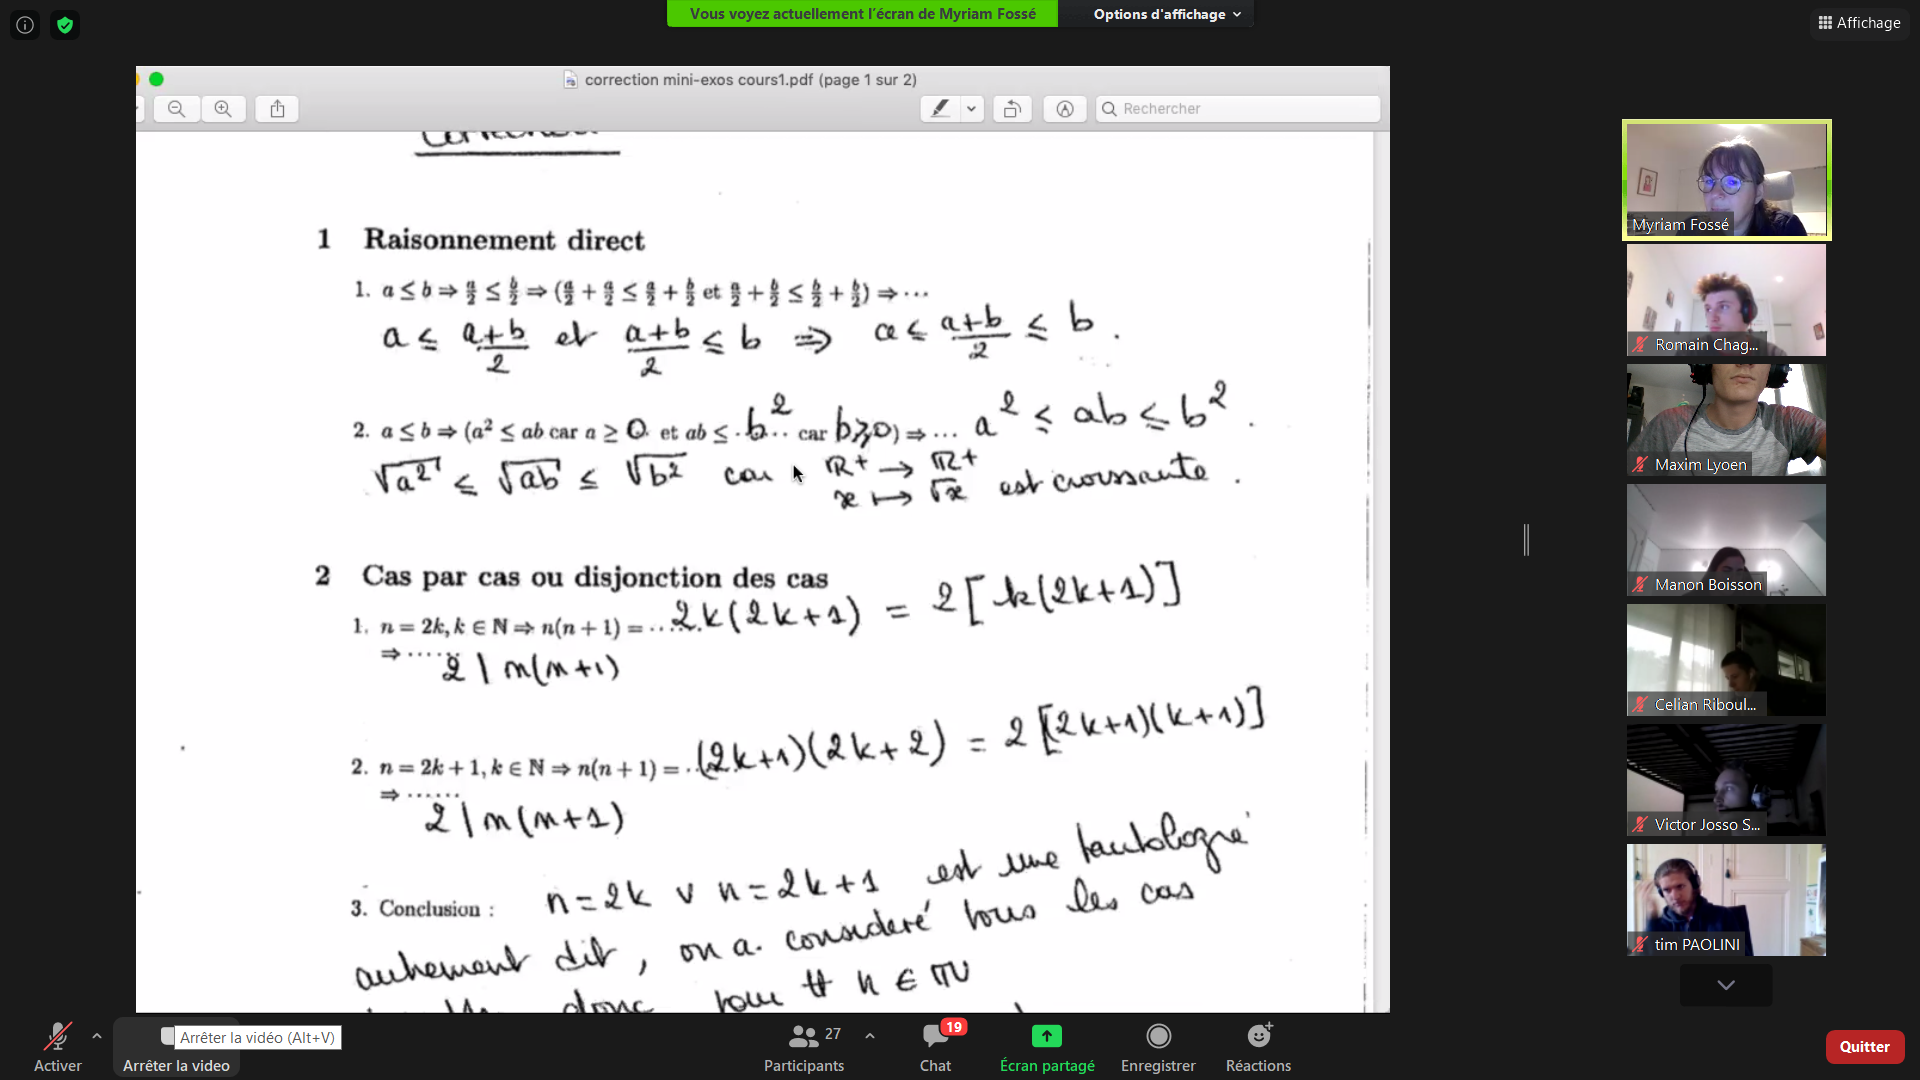 Vous voyez actuellement l'écran de Myriam Fossé
Options d'affichage
Affichage
correction mini-exos cours1.pdf (page 1 sur 2)
Rechercher
1 Raisonnement direct
1. a ≤ b ⇒ a/2 ≤ b/2 ⇒ (a/2 + a/2 ≤ a/2 + b/2 et a/2 + b/2 ≤ b/2 + b/2) ⇒ ···
a ≤ (a+b)/2 et (a+b)/2 ≤ b ⇒ a ≤ (a+b)/2 ≤ b .
2. a ≤ b ⇒ (a² ≤ ab car a ≥ 0 et ab ≤ ·b²·· car b≥0) ⇒ ··· a² ≤ ab ≤ b² .
√a² ≤ √ab ≤ √b² car ℝ+ → ℝ+
x ↦ √x est croissante .
2 Cas par cas ou disjonction des cas
1. n = 2k, k ∈ ℕ ⇒ n(n + 1) = ······ 2k(2k+1) = 2[k(2k+1)]
⇒ ······ 2 | n(n+1)
2. n = 2k + 1, k ∈ ℕ ⇒ n(n + 1) = ··· (2k+1)(2k+2) = 2[(2k+1)(k+1)]
⇒ ······
2 | n(n+1)
3. Conclusion : n = 2k ∨ n = 2k+1 est une tautologie
autrement dit, on a considéré tous les cas
donc pour tt n ∈ ℕ
Myriam Fossé
Romain Chag...
Maxim Lyoen
Manon Boisson
Celian Riboul...
Victor Josso S...
tim PAOLINI
Arrêter la vidéo (Alt+V)
27
19
Activer
Arrêter la video
Participants
Chat
Écran partagé
Enregistrer
Réactions
Quitter